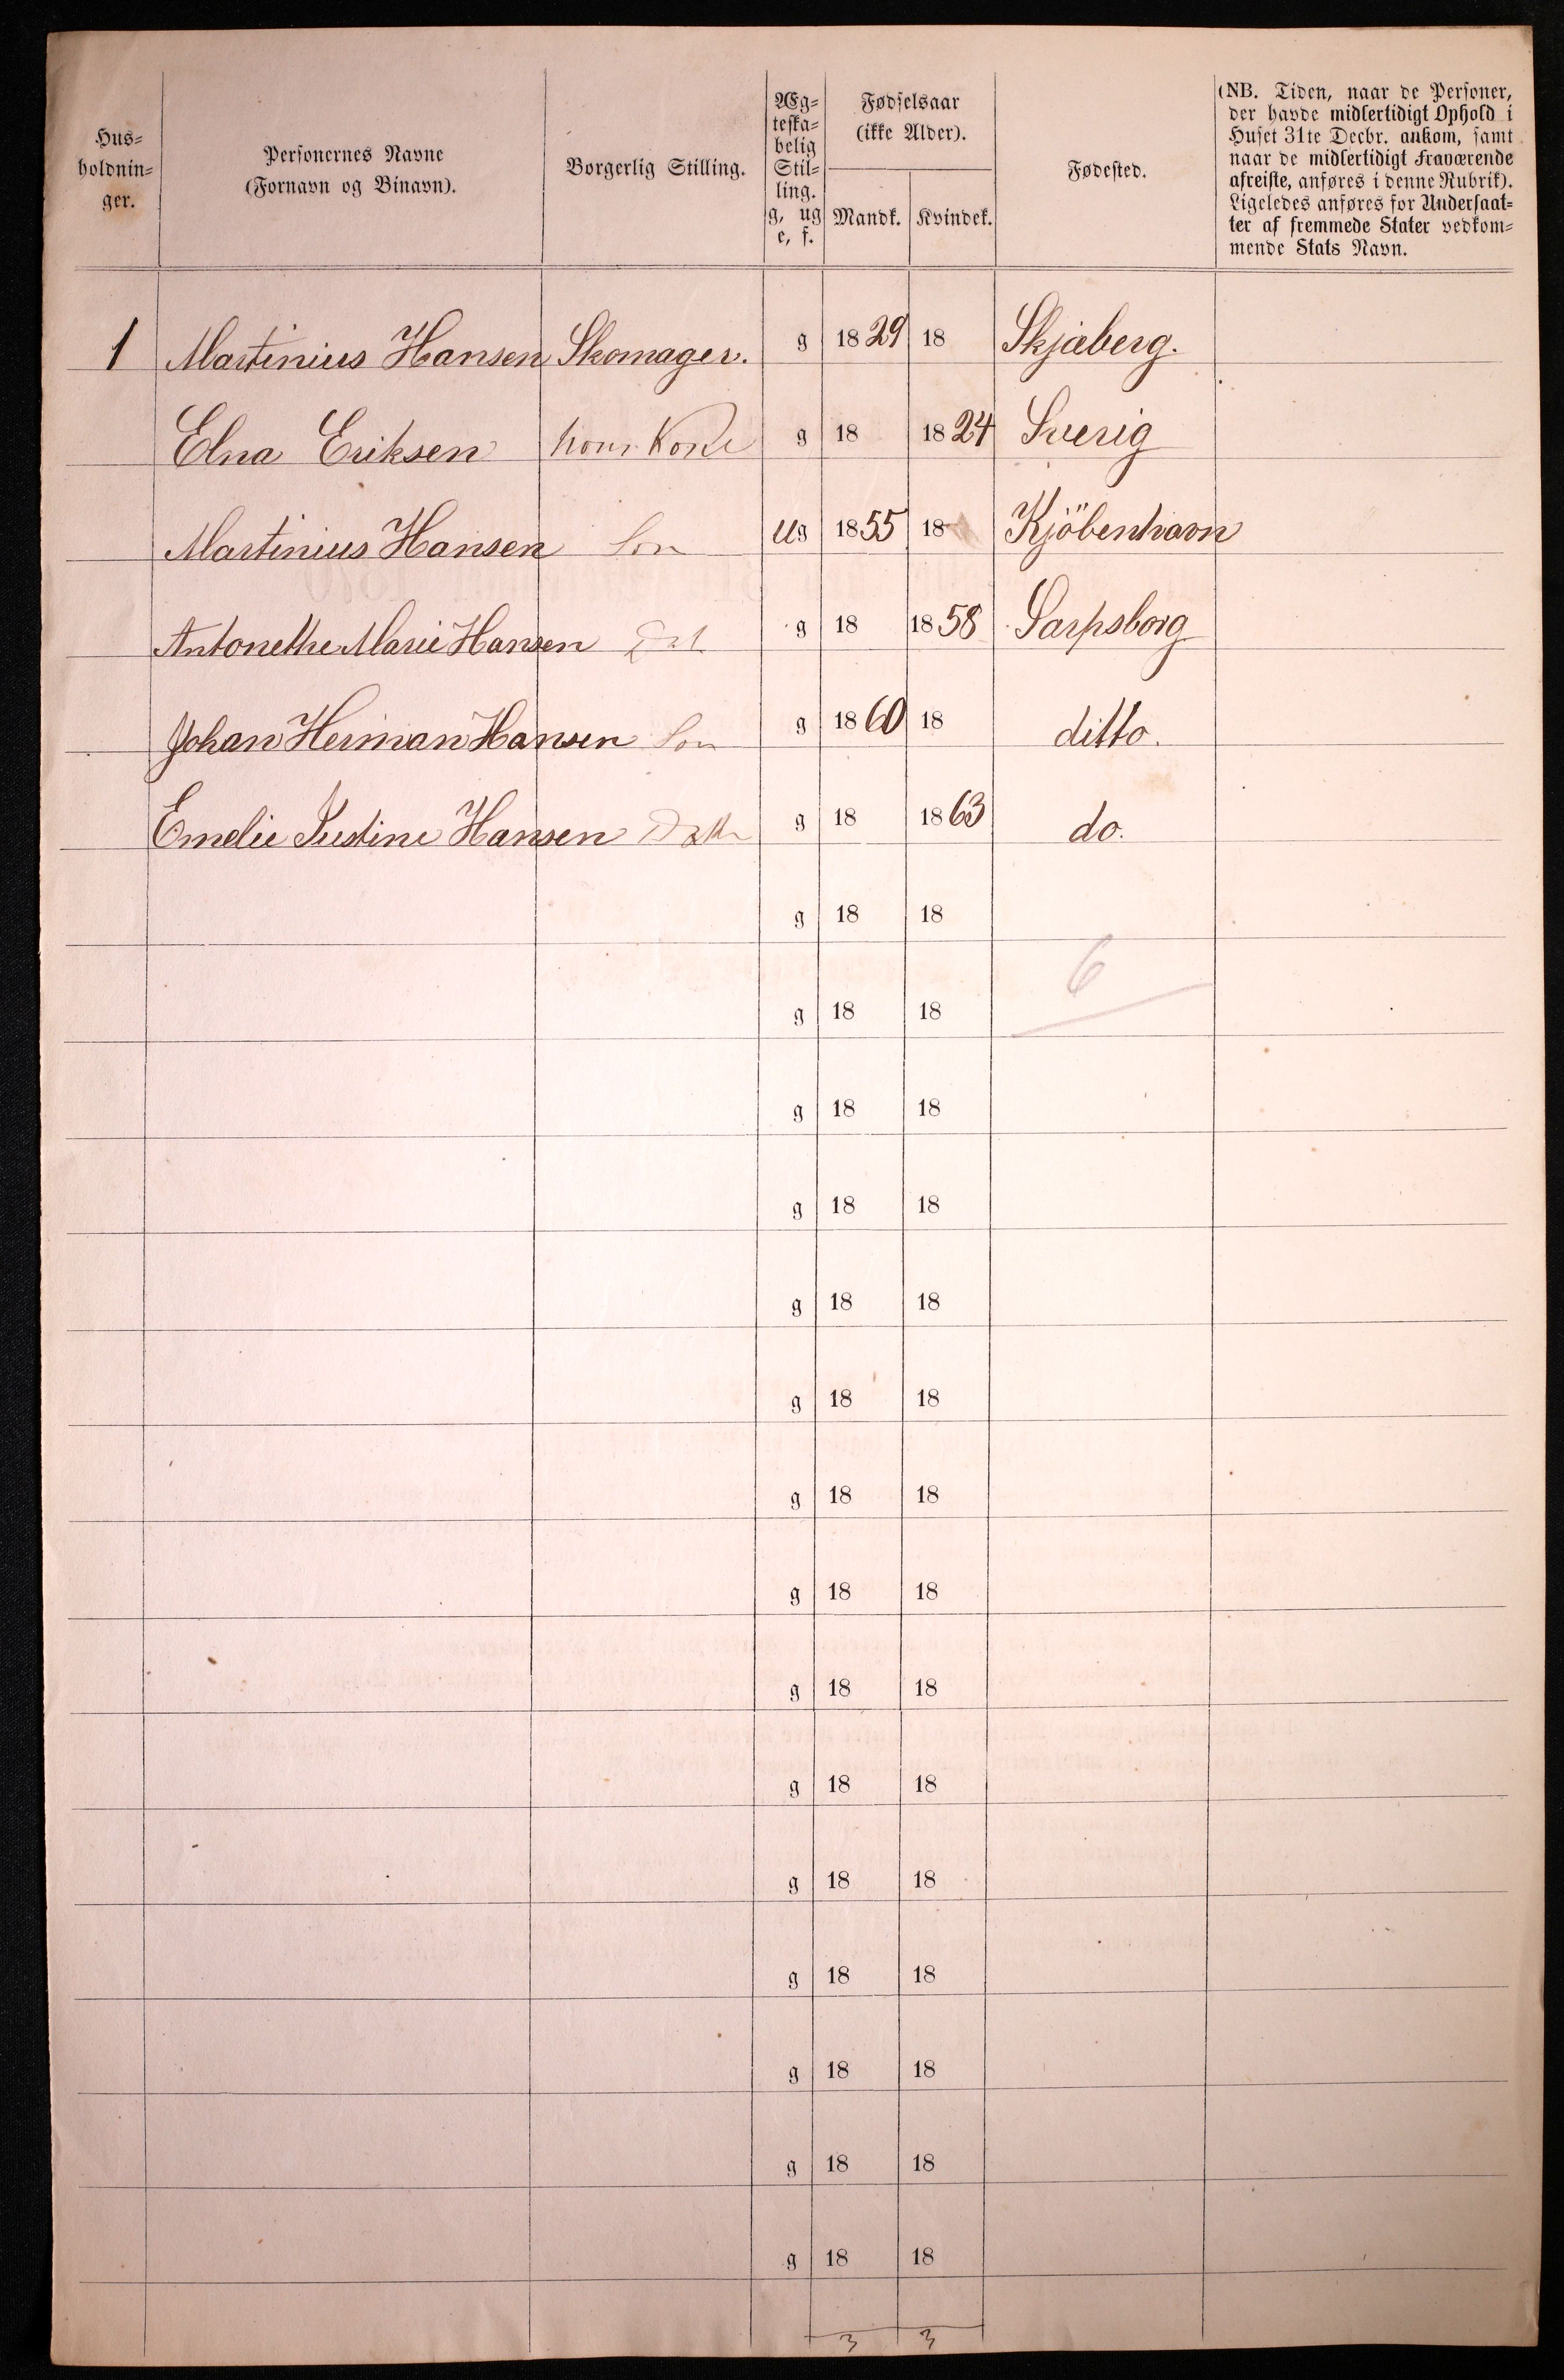 Hus-
holdnin-
ger.
Personernes Navne
(Fornavn og Binavn).
Borgerlig Stilling.
Æg-
teska-
belig
Stil-
ling.
g, ug
e, f.
Fødselsaar
(ikke Alder).
Mandk. Kvindek.
Fødested.
(NB. Tiden, naar de Personer,
der havde midlertidigt Ophold i
Huset 31te Decbr. ankom, samt
naar de midlertidigt Fraværende
afreiste, anføres i denne Rubrik).
Ligeledes anføres for Undersaat-
ter af fremmede Stater vedkom-
mende Stats Navn.
1 Martinius Hansen Skomager. g 1829 18 Skjæberg.
Elna Eriksen hans Kone g 18 1824 Sverig
Martinius Hansen Søn ug 1855 18 Kjöbenhavn
Antonethe Marie Hansen Dat g 18 1858 Sarpsborg
Johan Herman Hansen Søn g 1860 18 ditto.
Emelie Justine Hansen g 18 1863 do.
g 18 18
6
g 18 18
g 18 18
g 18 18
g 18 18
g 18 18
g 18 18
g 18 18
g 18 18
g 18 18
g 18 18
g 18 18
g 18 18
g 18 18
g 18 18
3 3